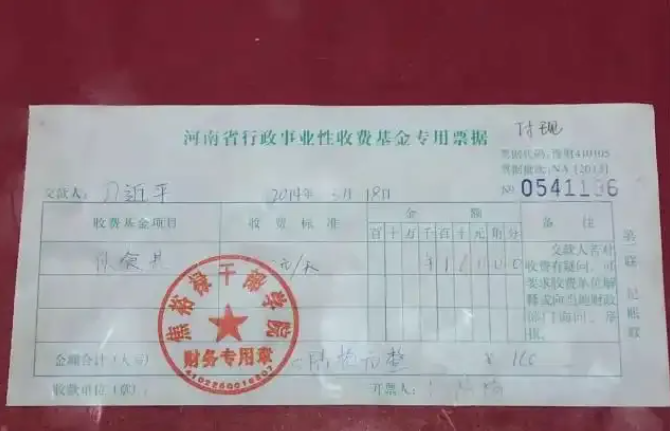 河南省行政事业性收费基金专用票据
付现
票据代码:豫财410105
票据批次:NA[2013]
交款人: 习近平 2014年 3月18日 № 0541196
收费基金项目 收费标准 金额 备注
百十万千百十元角分
伙食费 元/天 ¥16000
交款人若对收费有疑问,可要求收费单位解释或向当地财政部门询问、举报。
第 联 记账联
焦裕禄干部学院
财务专用章
4102250016207
金额合计(大写) 陆拾元整 ¥ 160
收款单位(章): 开票人: